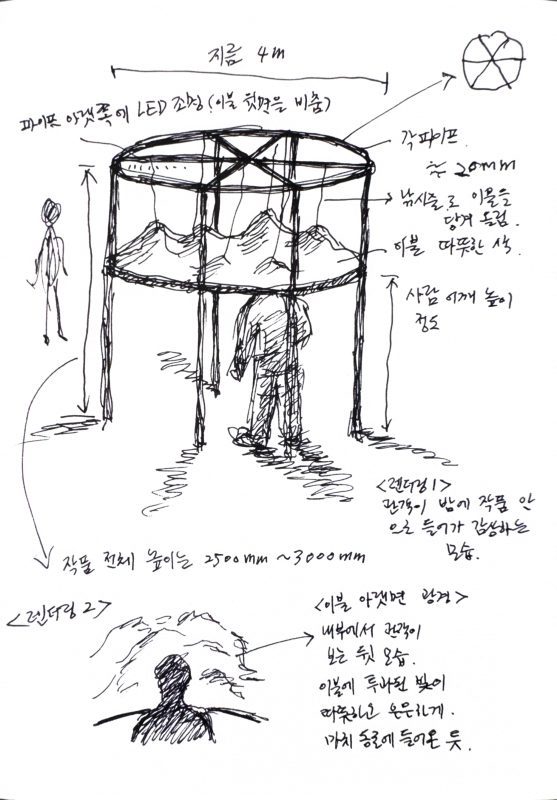 지름 4m
파이프 아랫쪽에 LED 조명 (이불 윗면을 비춤)
각파이프.
20mm
낚시줄로 이불을
당겨 올림.
이불 따뜻한 색.
사람 어깨 높이
정도
<렌더링 1>
관객이 밤에 작품 안
으로 들어가 감상하는
모습.
작품 전체 높이는 2500mm ~ 3000mm
<렌더링 2>
<이불 아랫면 광경>
내부에서 관객이
보는 뒷 모습.
이불에 투과된 빛이
따뜻하고 은은하게.
마치 동굴에 들어온 듯.